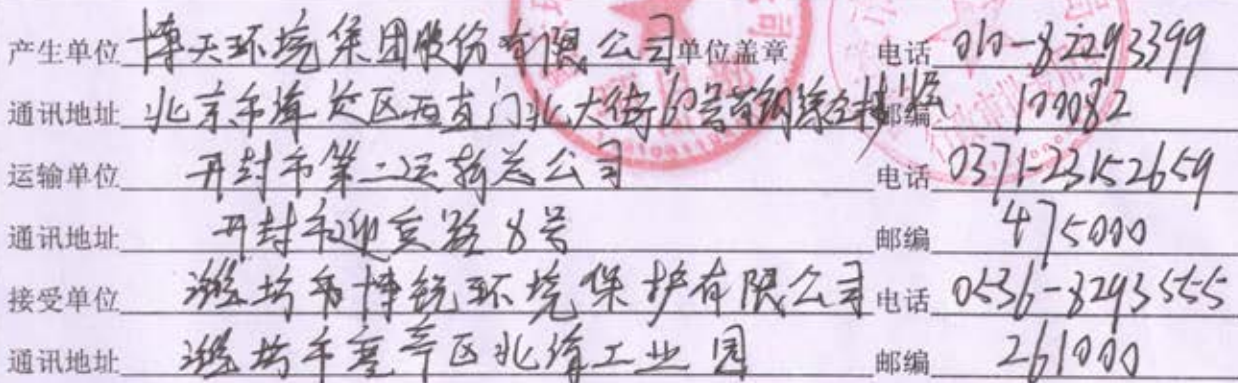 产生单位 博天环境集团股份有限公司 单位盖章 电话 010-82293399
通讯地址 北京市海淀区西直门北大街60号首钢综合楼 邮编 100082
运输单位 开封市第二运输总公司 电话 0371-23152659
通讯地址 开封市迎宾路8号 邮编 475000
接受单位 潍坊市博锐环境保护有限公司 电话 0536-8293555
通讯地址 潍坊市寒亭区北海工业园 邮编 261000